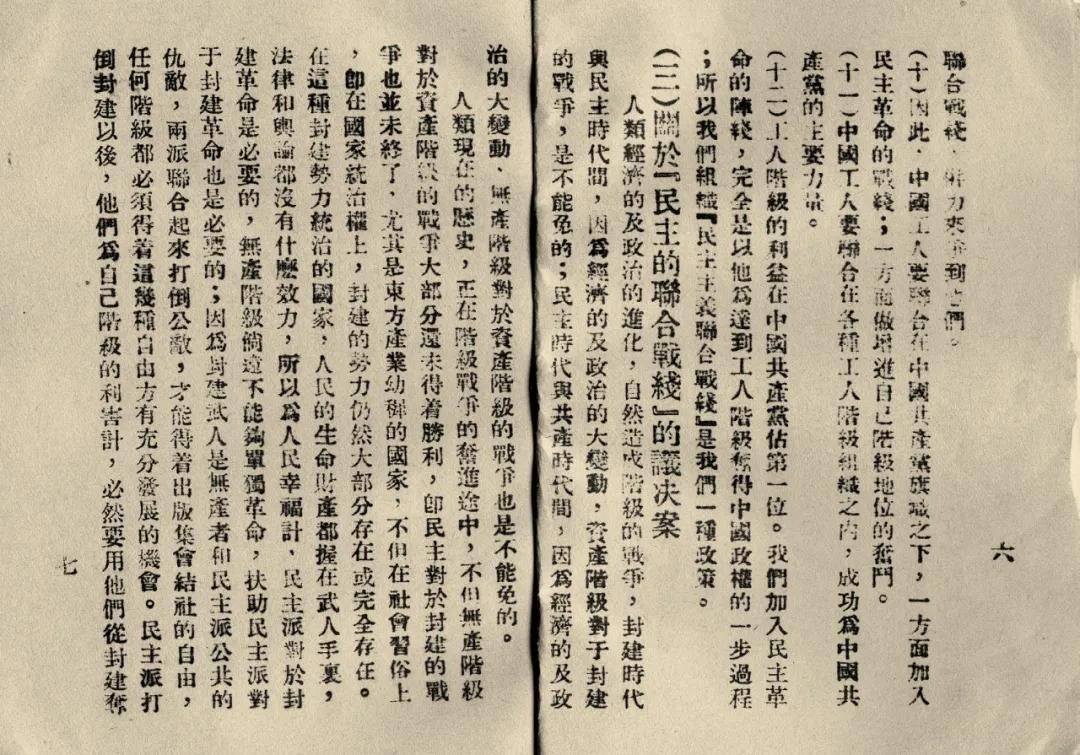 聯合戰綫，併力來爭到它們。
(十)因此，中國工人要聯合在中國共產黨旗幟之下，一方面加入
民主革命的戰綫；一方面做增進自己階級地位的奮鬥。
(十一)中國工人要聯合在各種工人階級組織之內，成功爲中國共
產黨的主要力量。
(十二)工人階級的利益在中國共產黨佔第一位。我們加入民主革
命的陣綫，完全是以他爲達到工人階級奪得中國政權的一步過程
；所以我們組織『民主主義聯合戰綫』是我們一種政策。
(二)關於『民主的聯合戰綫』的議決案
人類經濟的及政治的進化，自然造成階級的戰爭，封建時代
與民主時代間，因爲經濟的及政治的大變動，資產階級對于封建
的戰爭，是不能免的；民主時代與共產時代間，因爲經濟的及政
六
治的大變動、無產階級對於資產階級的戰爭也是不能免的。
人類現在的歷史，正在階級戰爭的奮進途中，不但無產階級
對於資產階級的戰爭大部分還未得着勝利，卽民主對於封建的戰
爭也並未終了，尤其是東方產業幼稺的國家，不但在社會習俗上
，卽在國家統治權上，封建的勢力仍然大部分存在或完全存在。
在這種封建勢力統治的國家，人民的生命財產都握在武人手裏，
法律和輿論都沒有什麽效力，所以爲人民幸福計，民主派對於封
建革命是必要的，無產階級倘還不能夠單獨革命，扶助民主派對
于封建革命也是必要的；因爲封建武人是無產者和民主派公共的
仇敵，兩派聯合起來打倒公敵，才能得着出版集會結社的自由，
任何階級都必須得着這幾種自由方有充分發展的機會。民主派打
倒封建以後，他們爲自己階級的利害計，必然要用他們從封建奪
七